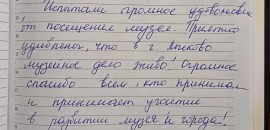 Испытали огромное удовольствие
от посещения музея. Приятно
удивлены, что в г.
музейное дело живо! Огромное
спасибо всем, кто принимал
и принимает участие
в развитии музея и города!